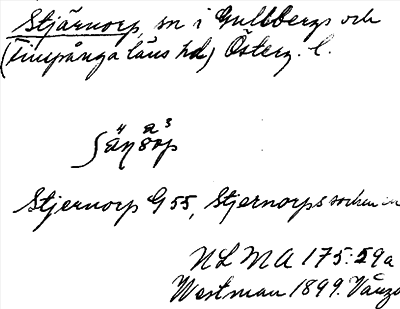 Stjärnorp, sn i Gullbergs och
(Finspånga läns hd) Österg. l.
Stjernorp G 55, Stjernorps socken in
NLMA 175:59a
Westman 1899.